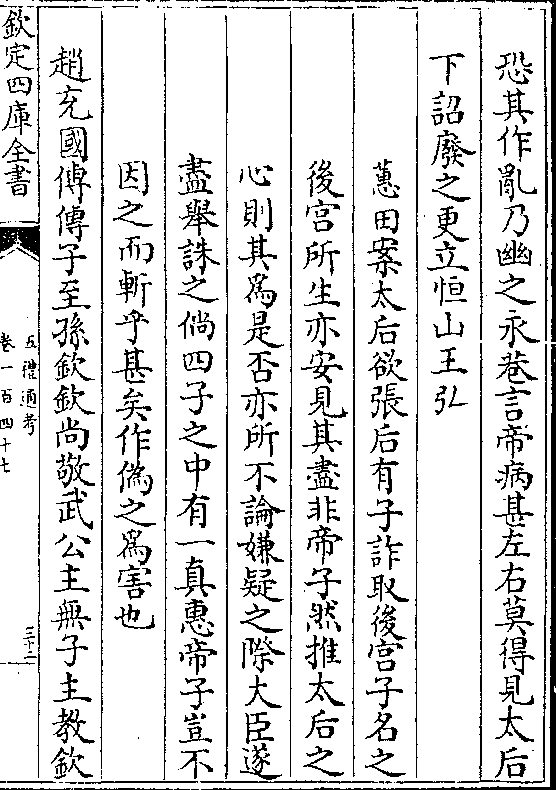 恐其作亂乃幽之永巷言帝病甚左右莫得見太后
下詔廢之更立恒山王弘
蕙田案太后欲張后有子詐取後宫子名之
後宫所生亦安見其盡非帝子然推太后之
心則其爲是否亦所不論嫌疑之際大臣遂
盡舉誅之倘四子之中有一真惠帝子豈不
因之而斬乎甚矣作僞之爲害也
趙充國傳傳子至孫欽欽尚敬武公主無子主教欽
欽定四庫全書
五禮通考
卷一百四十七
三十三